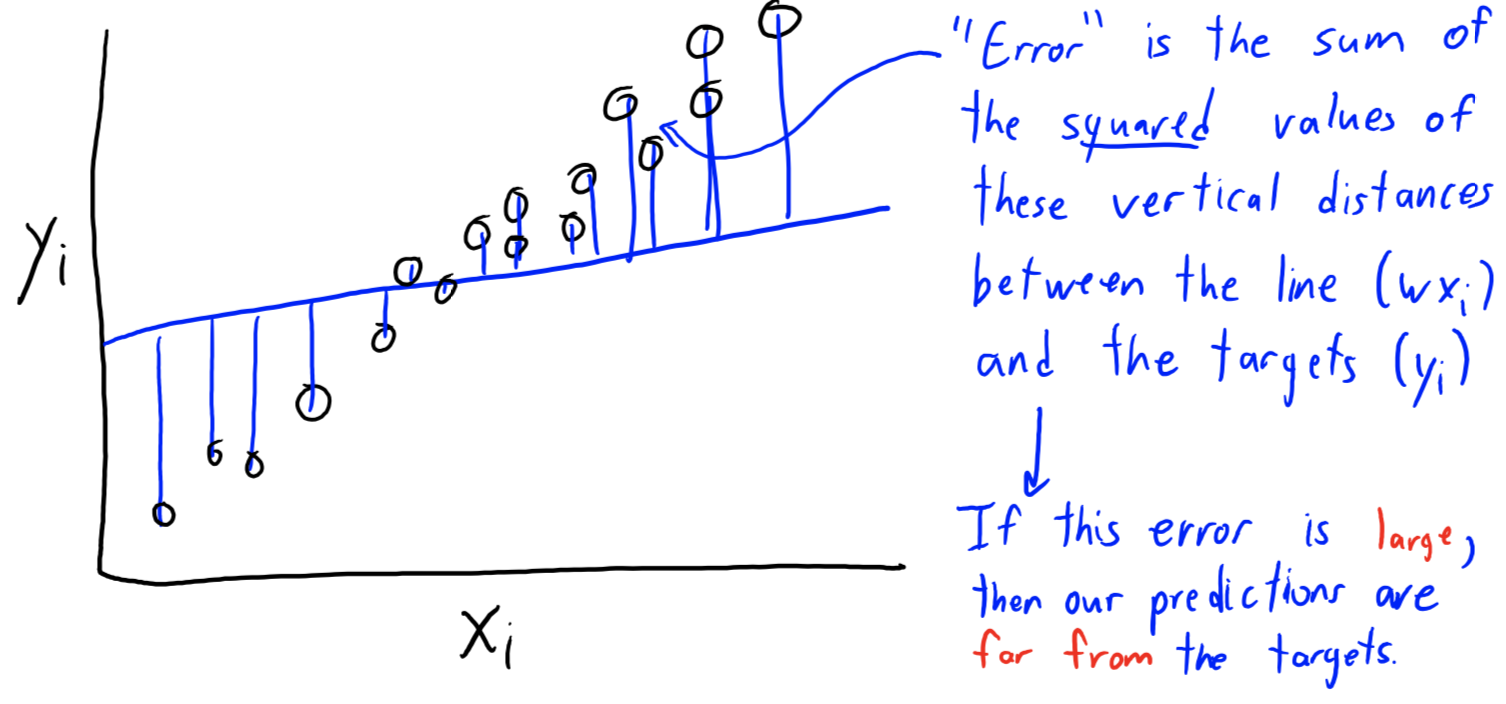 "Error" is the sum of
the squared values of
these vertical distances
between the line (wxᵢ)
and the targets (yᵢ)
If this error is large,
then our predictions are
far from the targets.
yᵢ
xᵢ